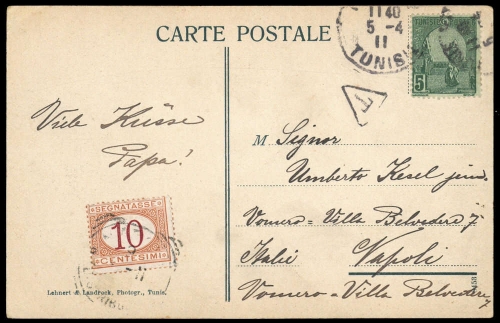 CARTE POSTALE
11 40
5 - 4
11
TUNIS
TUNISIE
5
T
Viele Küsse
Papa!
M. Signor
Umberto Kesel jun.
Vomero - Villa Belvedere 7
Italië Napoli
Vomero - Villa Belvedere 7
SEGNATASSE
10
CENTESIMI
Lehnert & Landrock, Photogr., Tunis.